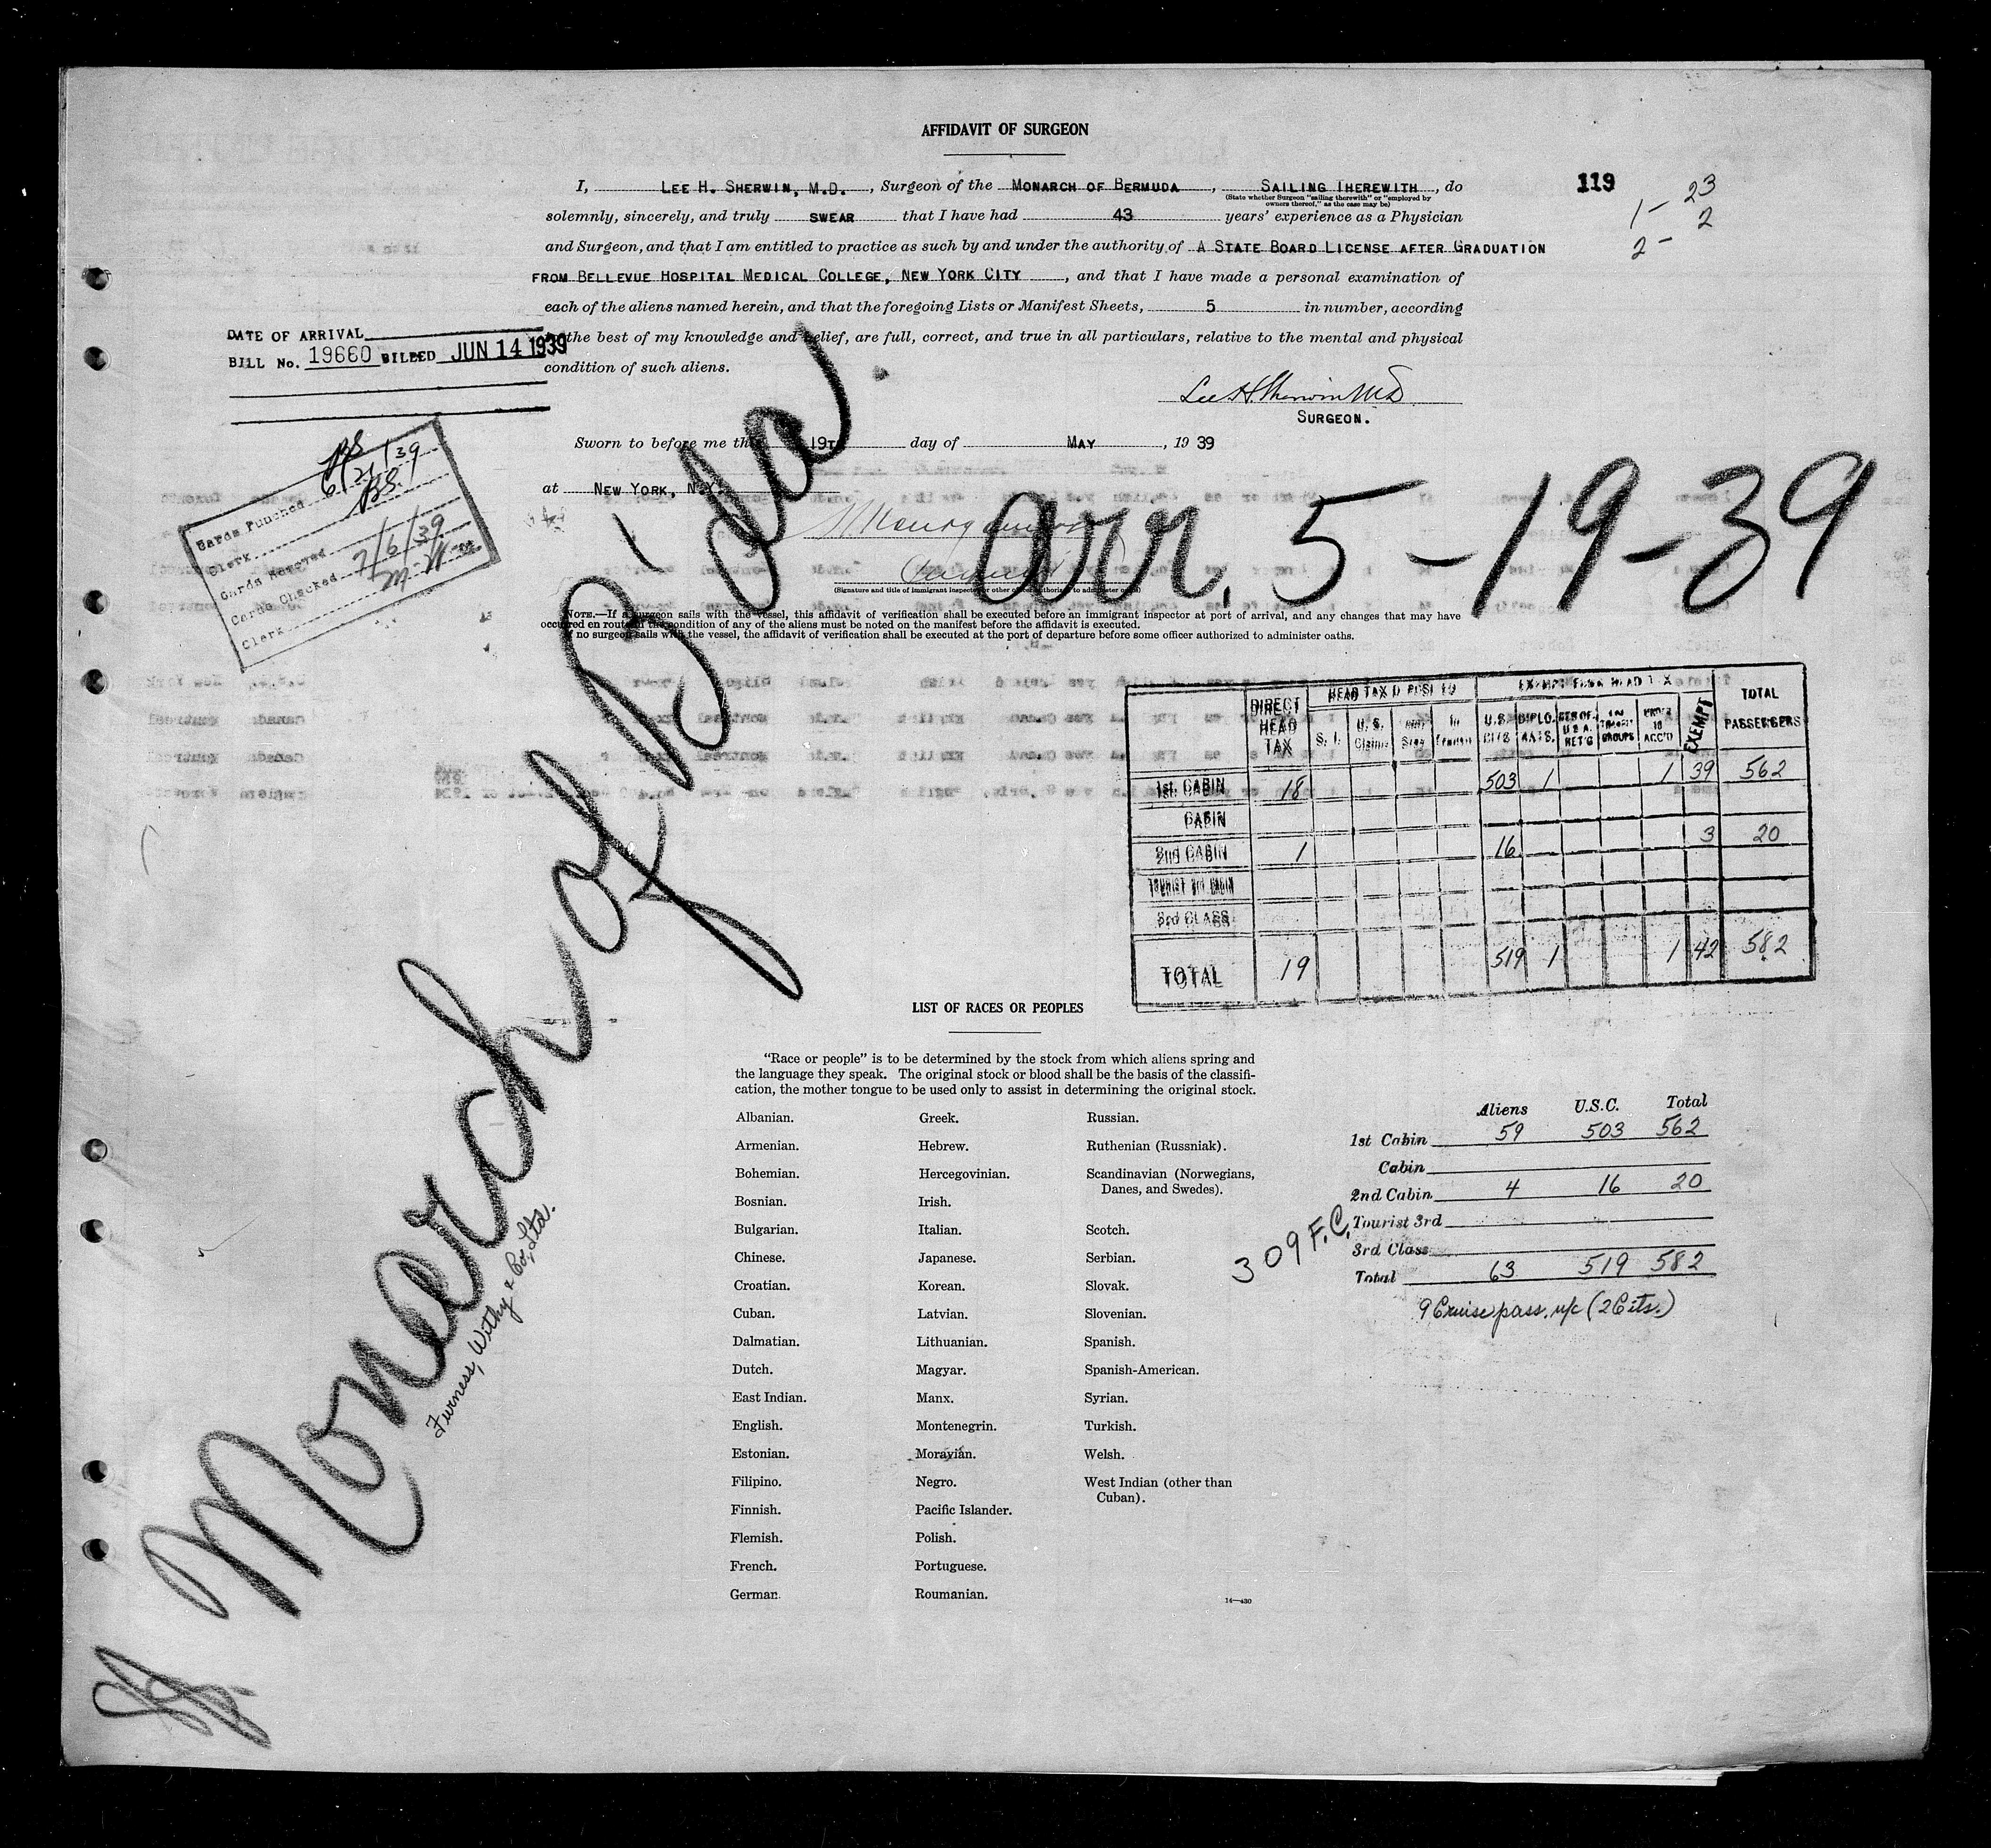 AFFIDAVIT OF SURGEON
119
1 - 23
2 - 2
I, LEE H. SHERWIN, M.D., Surgeon of the MONARCH OF BERMUDA, SAILING THEREWITH, do
(State whether Surgeon "sailing therewith" or "employed by
owners thereof," as the case may be)
solemnly, sincerely, and truly SWEAR that I have had 43 years' experience as a Physician
and Surgeon, and that I am entitled to practice as such by and under the authority of A STATE BOARD LICENSE AFTER GRADUATION
FROM BELLEVUE HOSPITAL MEDICAL COLLEGE, NEW YORK CITY, and that I have made a personal examination of
each of the aliens named herein, and that the foregoing Lists or Manifest Sheets, 5 in number, according
the best of my knowledge and belief, are full, correct, and true in all particulars, relative to the mental and physical
condition of such aliens.
DATE OF ARRIVAL
BILL No. 19660 BILLED JUN 14 1939
Lee H. Sherwin MD
SURGEON.
Sworn to before me this 19TH day of MAY, 19 39
at NEW YORK, N.Y.
(Signature and title of immigrant inspector or other officer authorized to administer oaths)
Cards Punched 6/21/39
Clerk BS.
Cards Removed
Cards Checked 7/6/39
Clerk
arr. 5-19-39
NOTE.—If a surgeon sails with the vessel, this affidavit of verification shall be executed before an immigrant inspector at port of arrival, and any changes that may have
occurred en route in the condition of any of the aliens must be noted on the manifest before the affidavit is executed.
If no surgeon sails with the vessel, the affidavit of verification shall be executed at the port of departure before some officer authorized to administer oaths.
Monarch of B'da.
Furness, Withy & Co., Ltd.
DIRECT HEAD TAX HEAD TAX DEPOSITED EXEMPT FROM HEAD TAX TOTAL PASSENGERS
S. I. U. S. Claims In Transit U. S. CITS. DIPLOMATS. RES OF U S A. RET'G IN TRANSIT GROUPS UNDER 16 ACC'D EXEMPT
1st. CABIN 18 503 1 1 39 562
CABIN
2nd CABIN 1 16 3 20
TOURIST 3rd CABIN
3rd CLASS
TOTAL 19 519 1 1 42 582
LIST OF RACES OR PEOPLES
"Race or people" is to be determined by the stock from which aliens spring and
the language they speak. The original stock or blood shall be the basis of the classifi-
cation, the mother tongue to be used only to assist in determining the original stock.
Albanian.
Armenian.
Bohemian.
Bosnian.
Bulgarian.
Chinese.
Croatian.
Cuban.
Dalmatian.
Dutch.
East Indian.
English.
Estonian.
Filipino.
Finnish.
Flemish.
French.
German.
Greek.
Hebrew.
Hercegovinian.
Irish.
Italian.
Japanese.
Korean.
Latvian.
Lithuanian.
Magyar.
Manx.
Montenegrin.
Moravian.
Negro.
Pacific Islander.
Polish.
Portuguese.
Roumanian.
Russian.
Ruthenian (Russniak).
Scandinavian (Norwegians,
Danes, and Swedes).
Scotch.
Serbian.
Slovak.
Slovenian.
Spanish.
Spanish-American.
Syrian.
Turkish.
Welsh.
West Indian (other than
Cuban).
14—430
Aliens U.S.C. Total
1st Cabin 59 503 562
Cabin
2nd Cabin 4 16 20
Tourist 3rd
3rd Class
Total 63 519 582
309 F.C.
9 Cruise pass. n/c (2 Cits.)